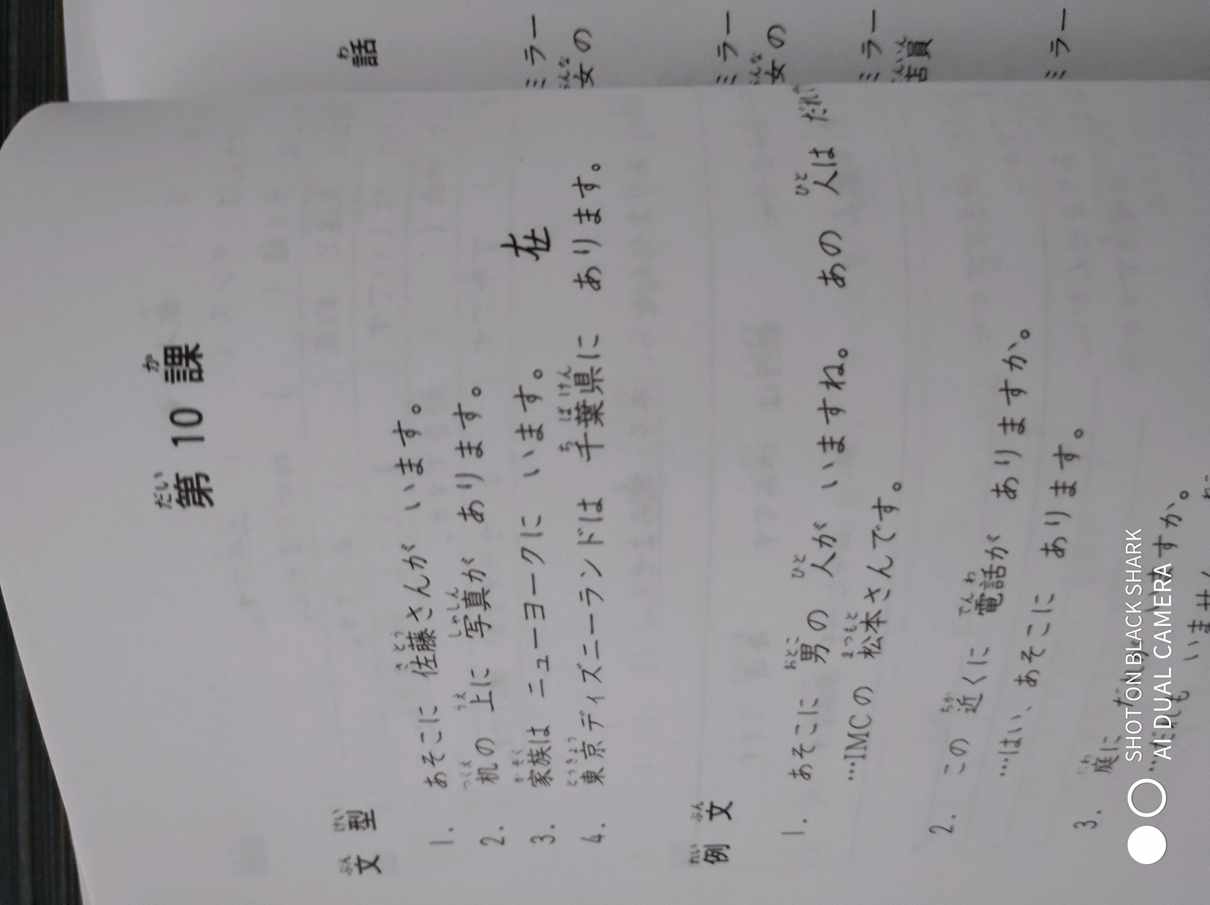 第 10 課
文型
1. あそこに 佐藤さんが います。
2. 机の 上に 写真が あります。
3. 家族は ニューヨークに います。
在
4. 東京ディズニーランドは 千葉県に あります。
例文
1. あそこに 男の 人が いますね。 あの 人は だれ
…IMCの 松本さんです。
2. この 近くに 電話が ありますか。
…はい、あそこに あります。
3. 庭に だれが いますか。
…だれも いません
話
ミラー
女の
ミラー
女の
ミラー
店員
ミラー
SHOT ON BLACK SHARK
AI DUAL CAMERA